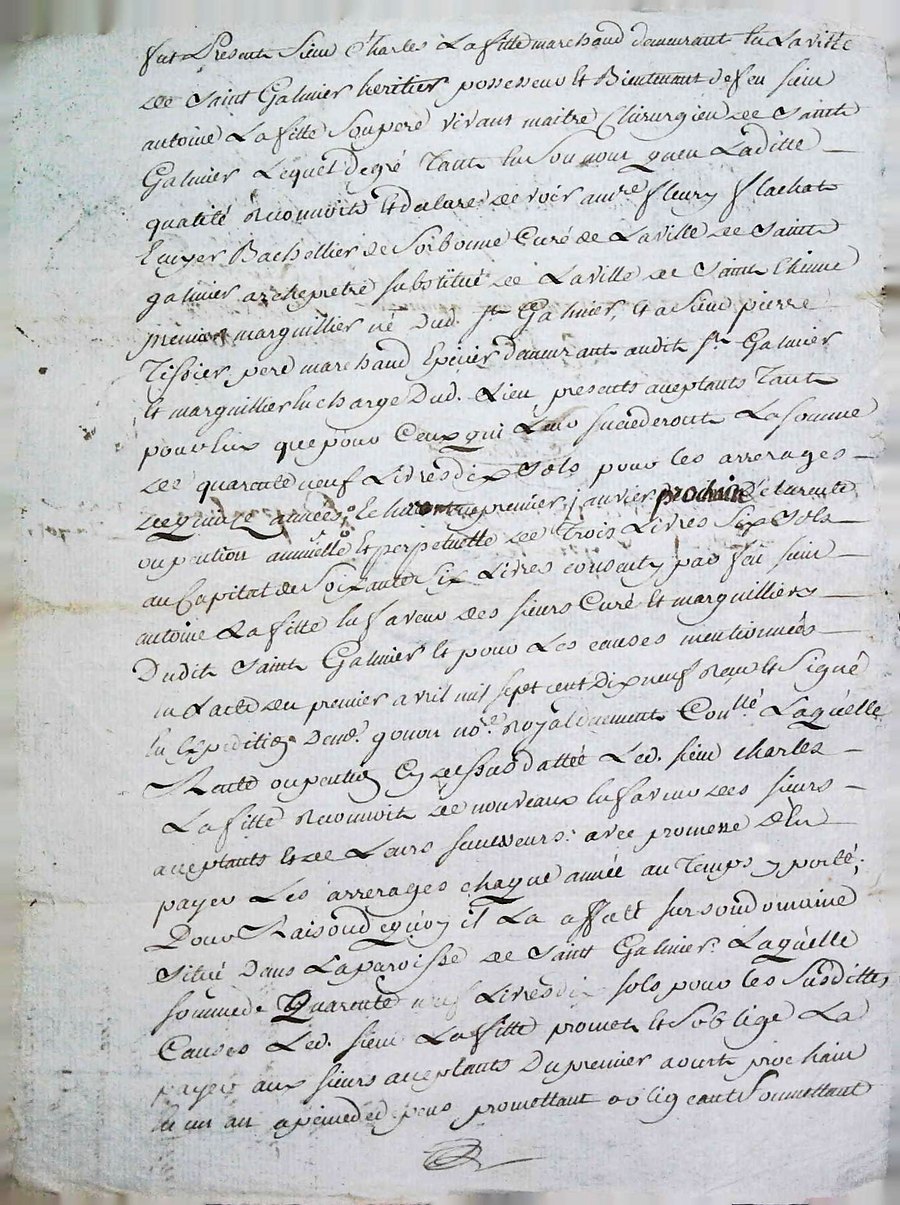 fut Present Sieur Charles Lafitte marchand demeurant en La ville
de Saint Galmier heritier possesseur et Bientenant de feu sieur
antoine Lafitte Son pere vivant maitre Chirurgien de Saint
Galmier Lequel de gré Tant en Son nom quen Laditte
qualité reconnoit et declare devoir a mre fleury flachat
Ecuyer Bachellier de Sorbonne Curé de La ville de Saint
galmier archepretre substitué de La ville de Saint Etienne
premier marguillier né dud. st Galmier, et a Sieur pierre
Tissier pere marchand Epicier demeurant audit st Galmier
et marguillier en charge dud. Lieu, presents acceptants Tant
pour Eux que pour Ceux qui Leur succederont La somme
de quarente neuf Livres dix Sols pour les arrerages
de quinze années premier janvier prochain de la rente
ou pention annuelle et perpetuelle de Trois Livres Six Sols
au Capital de Soixante Six Livres consenty par feu sieur
antoine Lafitte en faveur des sieurs Curé et marguilliers
Dudit Saint Galmier et pour Les causes mentionnées
en Lacte du premier avril mil sept cent Dix neuf reçu et Signé
En Expedition De me gonon nore Royal duement Conllé Laquelle
Rente ou pention Cy dessus dattée Led. sieur charles
Lafitte reconnoit de nouveaux en faveur des sieurs
acceptants et de Leurs successeurs: avec promesse d'en
payer Les arrerages chaque année au Temps y porté;
Pour Raison de quoy il La assatt sur son domaine
Situé Dans La paroisse de Saint Galmier Laquelle
somme de Quarente neuf Livres dix sols pour les Susdittes
Causes Led. sieur Lafitte promet et Soblige La
payer aux sieurs acceptants Du premier aoust prochain
En un an a peine de d. pens promettant obligeant Soumettant